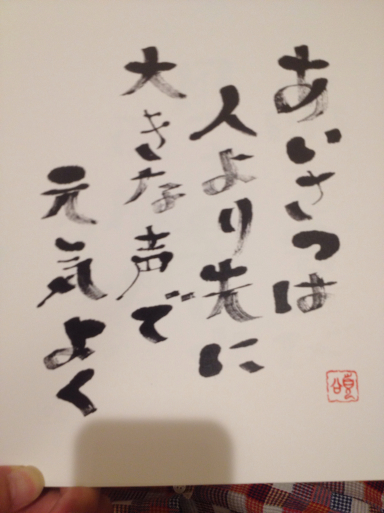 あいさつは
人より先に
大きな声で
元気よく